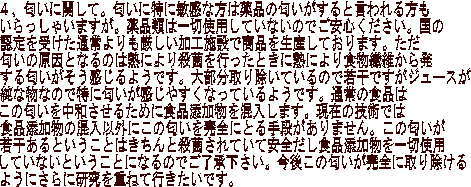 ４、匂いに関して。匂いに特に敏感な方は薬品の匂いがすると言われる方も
いらっしゃいますが。薬品類は一切使用していないのでご安心ください。国の
認定を受けた通常よりも厳しい加工施設で商品を生産しております。ただ
匂いの原因となるのは熱により殺菌を行ったときに熱により食物繊維から発
する匂いがそう感じるようです。大部分取り除いているので若干ですがジュースが
純な物なので特に匂いが感じやすくなっているようです。通常の食品は
この匂いを中和させるために食品添加物を混入します。現在の技術では
食品添加物の混入以外にこの匂いを完全にとる手段がありません。この匂いが
若干あるということはきちんと殺菌されていて安全だし食品添加物を一切使用
していないということになるのでご了承下さい。今後この匂いが完全に取り除ける
ようにさらに研究を重ねて行きたいです。